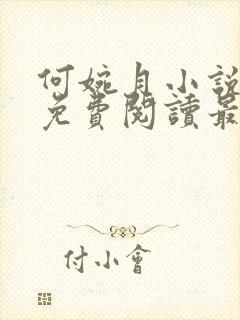 何婉月小說
免費閱讀最
付小會